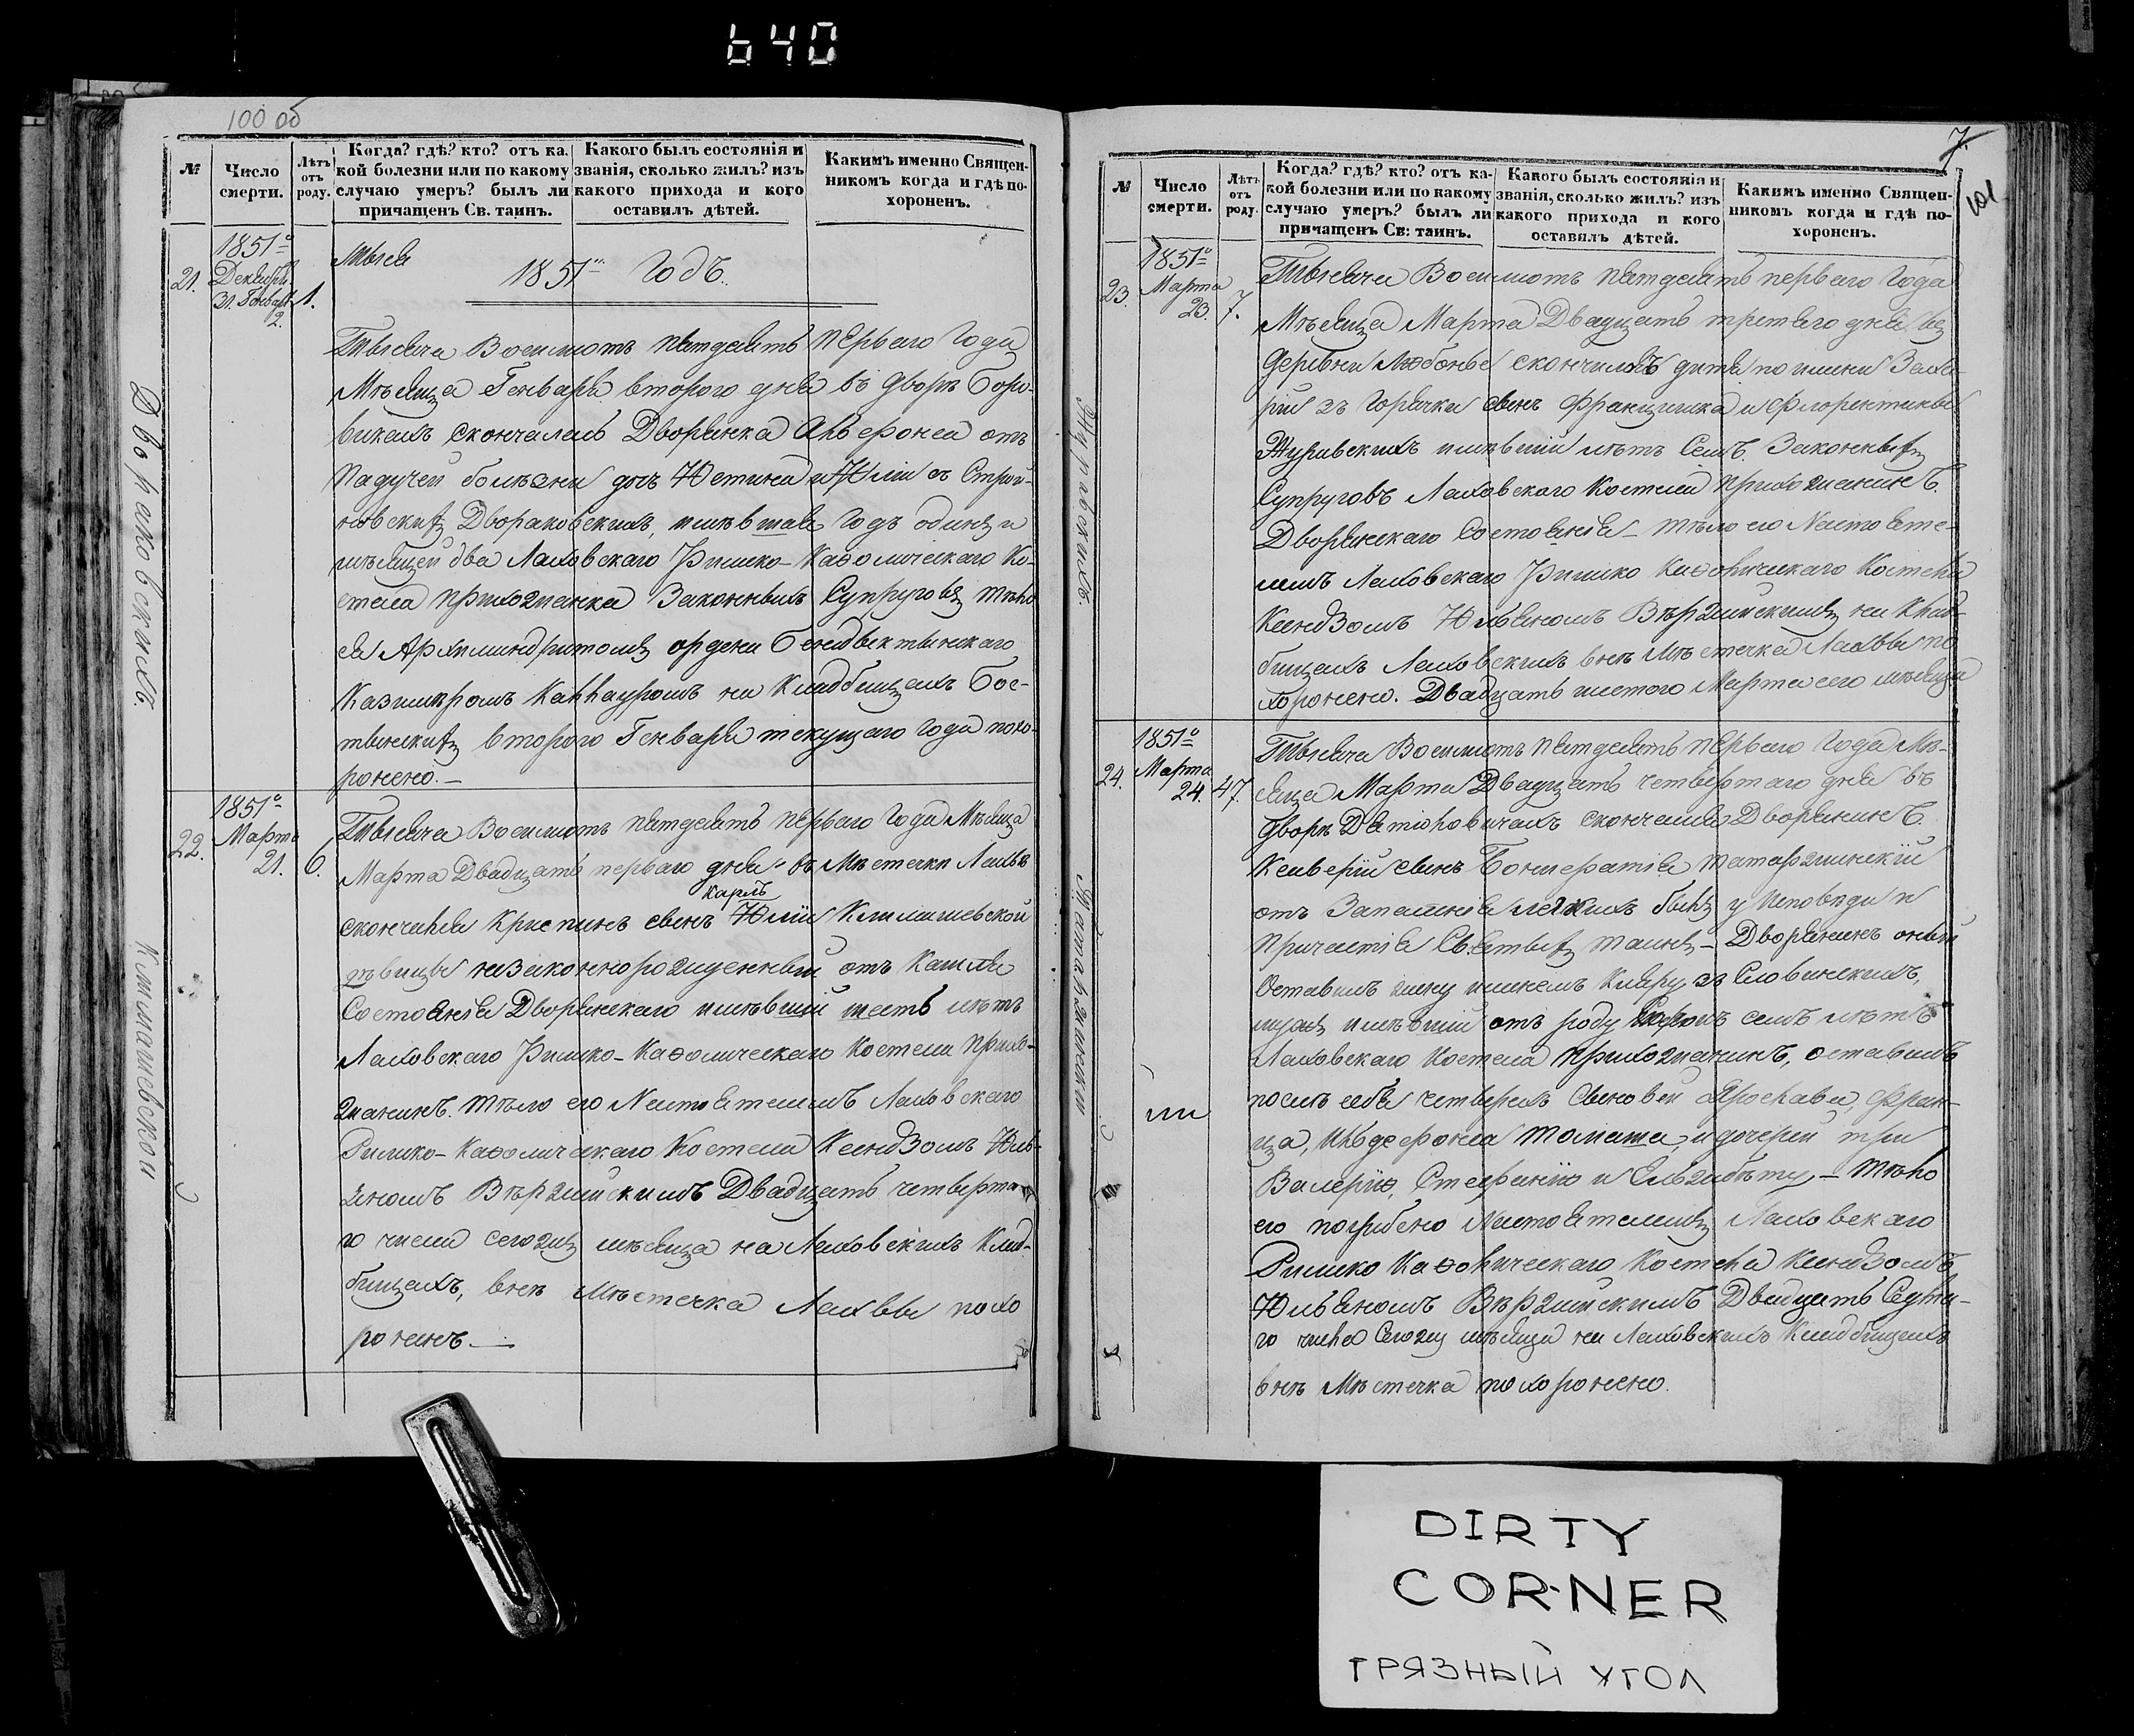 640
100 об
№
Число смерти.
Лѣтъ отъ роду.
Когда? гдѣ? кто? отъ ка-
кой болезни или по какому
случаю умеръ? былъ ли
причащенъ Св. таинъ.
Какого былъ состоянія и
званія, сколько жилъ? изъ
какого прихода и кого
оставилъ дѣтей.
Какимъ именно Священ-
никомъ когда и гдѣ по-
хороненъ.
Двораковскихъ.
21.
1851го
Декабря
31. Генваря
2.
1.
1851й Годъ.
Тысяча Восемьсотъ пятдесятъ перваго Года
Мѣсяца Генваря второго дня въ дворѣ
скончалась Дворянка отъ
Падучей болезни дочъ Юстина и Юліи съ Строй-
новскихъ Двораковскихъ, имѣвшая Годъ одинъ и
мѣсяцей два Лаховскаго Римско-Каѳолическаго Ко-
стела прихожанка Законныхъ Супруговъ тѣло
ея Архимандритомъ ордена Бенедиктынскаго
Казимѣромъ на Кладбищахъ
второго Генваря текущаго Года похо-
ронено.—
22.
1851го
Марта
21.
6.
Тысяча Восемьсотъ пятдесятъ перваго Года Мѣсяца
Марта Двадцать перваго дня въ Мѣстечки Лахвѣ
Карлъ
скончался Криспинъ сынъ Юліи Климашевской
дѣвицы незаконнорожденный отъ Кашля
Состоянія Дворянскаго имѣвшій шесть лѣтъ
Лаховскаго Римско-Каѳолическаго Костела прихо-
жанинъ. тѣло его Настоятелемъ Лаховскаго
Римско-Каѳолическаго Костела Ксендзомъ Юль-
яномъ Вѣржинскимъ Двадцать четверта-
го числа сегожъ мѣсяца на Лаховскихъ Клад-
бищахъ, внѣ Мѣстечка Лахвы похо
роненъ.—
Климашевской
7.
101
№
Число смерти.
Лѣтъ отъ роду.
Когда? гдѣ? кто? отъ ка-
кой болезни или по какому
случаю умеръ? былъ ли
причащенъ Св: таинъ.
Какого былъ состоянія и
званія, сколько жилъ? изъ
какого прихода и кого
оставилъ дѣтей.
Какимъ именно Священ-
никомъ когда и гдѣ по-
хороненъ.
Журавскихъ.
23.
1851го
Марта
23.
7.
Тысяча Восемьсотъ пятдесятъ перваго Года
Мѣсяца Марта Двадцать третяго дня въ
деревни скончилсь дитя по имени Заха-
рій зъ Горячки сынъ Францишка и Флорентины
Журавскихъ имѣвшій лѣтъ Семь. Законныхъ
Супруговъ Лаховского Костела прихожанинъ.
Дворянскаго Состоянія— тѣло его Настояте-
лемъ Лаховскаго Римско Каѳолическаго Костела
Ксендзомъ Юльяномъ Вѣржинскимъ на Клад-
бищахъ Лаховскихъ внѣ Мѣстечка Лахвы по
хоронено. Двадцать шестого Марта сего мѣсяца
Татаржински
24.
1851го
Марта
24.
47.
Тысяча Восемьсотъ пятдесятъ перваго Года Мѣ-
сяца Марта Двадцать четвертаго дня въ
дворѣ Дятловичахъ скончался Дворянинъ
Ксаверій сынъ Татаржинскій
отъ Запаленія легкихъ былъ у Исповѣди и
Причастія Святыхъ таинъ— Дворянинъ оный
Оставилъ жену именемъ Клару зъ Словинскихъ,
имѣвшій отъ роду Сорокъ семъ лѣтъ
Лаховскаго Костела прихожанинъ, оставилъ
послѣ себя четверыхъ Сыновей Ярослава, Фран-
ца, Ильдефонса Томаша, и дочерей три
Валерію, Стефанію и Ельжбѣту,— тѣло
его погрібено Настоятелемъ Лаховскаго
Римско Каѳолическаго Костела Ксендзомъ
Юльяномъ Вѣржинскимъ Двадцать Седьма-
го числа Сегожъ мѣсяца на Лаховскихъ Кладбищахъ
внѣ Мѣстечка похоронено.
DIRTY
CORNER
ГРЯЗНЫЙ УГОЛ